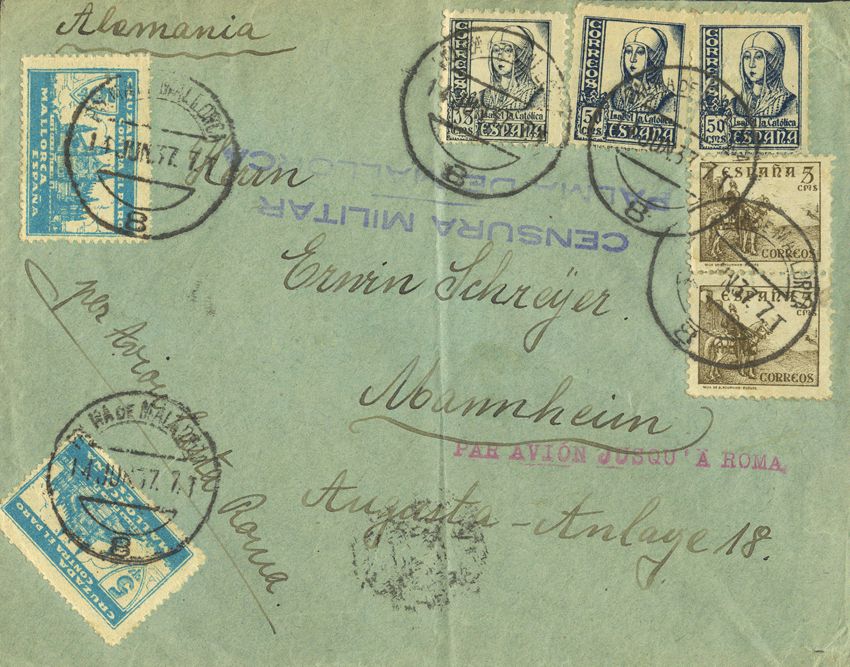 Alemania
CORREOS
Isabel la Católica
ESPAÑA
CORREOS
50 cts
Isabel la Católica
ESPAÑA
CORREOS
50 cts
Isabel la Católica
ESPAÑA
CRUZADA
CONTRA EL PARO
MALLORCA
ESPAÑA
14 JUN.37. 7.T
8
8
8
ESPAÑA 5
cts
CORREOS
ESPAÑA
cts
CORREOS
8
CENSURA MILITAR
PALMA DE MALLORCA
Herrn
Erwin Schreÿer.
Mannheim
PAR AVIÓN JUSQU'A ROMA
Augusta-Anlage 18.
per Avion hasta Roma.
PALMA DE MALLORCA
14 JUN.37. 7.T
8
CRUZADA
CONTRA EL PARO
MALLORCA
5